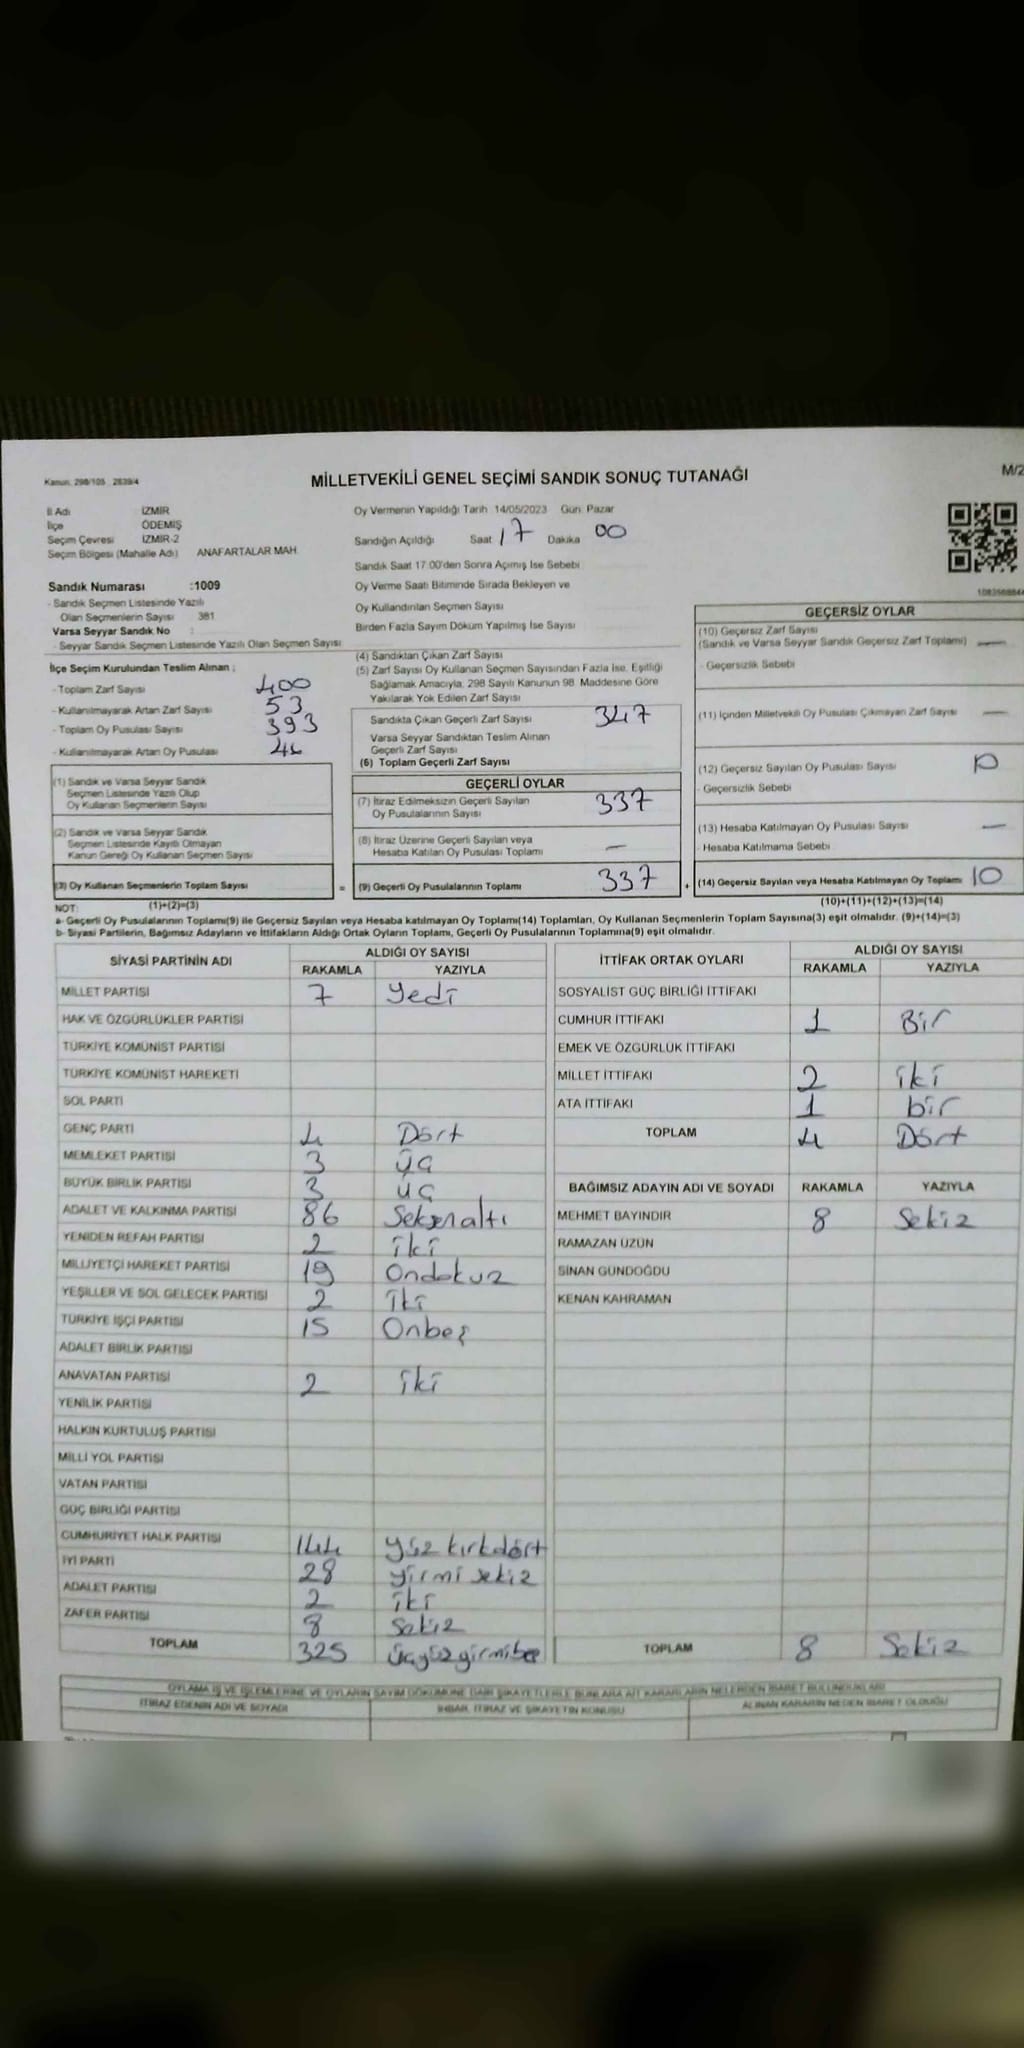 Kanun: 298/105 , 2839/4
MİLLETVEKİLİ GENEL SEÇİMİ SANDIK SONUÇ TUTANAĞI
M/2
İl Adı İZMİR
İlçe ÖDEMİŞ
Seçim Çevresi İZMİR-2
Seçim Bölgesi (Mahalle Adı) ANAFARTALAR MAH.
Sandık Numarası :1009
- Sandık Seçmen Listesinde Yazılı
Olan Seçmenlerin Sayısı 381
Varsa Seyyar Sandık No :
- Seyyar Sandık Seçmen Listesinde Yazılı Olan Seçmen Sayısı
İlçe Seçim Kurulundan Teslim Alınan ;
- Toplam Zarf Sayısı 400
- Kullanılmayarak Artan Zarf Sayısı 53
- Toplam Oy Pusulası Sayısı 393
- Kullanılmayarak Artan Oy Pusulası
(1) Sandık ve Varsa Seyyar Sandık
Seçmen Listesinde Yazılı Olup
Oy Kullanan Seçmenlerin Sayısı
(2) Sandık ve Varsa Seyyar Sandık
Seçmen Listesinde Kayıtlı Olmayan
Kanun Gereği Oy Kullanan Seçmen Sayısı
(3) Oy Kullanan Seçmenlerin Toplam Sayısı =
Oy Vermenin Yapıldığı Tarih 14/05/2023 Gün: Pazar
Sandığın Açıldığı Saat 17 Dakika 00
Sandık Saat 17:00'den Sonra Açmış İse Sebebi
Oy Verme Saati Bitiminde Sırada Bekleyen ve
Oy Kullandırılan Seçmen Sayısı
Birden Fazla Sayım Döküm Yapılmış İse Sayısı
(4) Sandıktan Çıkan Zarf Sayısı
(5) Zarf Sayısı Oy Kullanan Seçmen Sayısından Fazla İse, Eşitliği
Sağlamak Amacıyla, 298 Sayılı Kanunun 98. Maddesine Göre
Yakılarak Yok Edilen Zarf Sayısı
Sandıkta Çıkan Geçerli Zarf Sayısı 347
Varsa Seyyar Sandıktan Teslim Alınan
Geçerli Zarf Sayısı
(6) Toplam Geçerli Zarf Sayısı
GEÇERLİ OYLAR
(7) İtiraz Edilmeksizin Geçerli Sayılan
Oy Pusulalarının Sayısı 337
(8) İtiraz Üzerine Geçerli Sayılan veya
Hesaba Katılan Oy Pusulası Toplamı —
(9) Geçerli Oy Pusulalarının Toplamı 337 +
GEÇERSİZ OYLAR
(10) Geçersiz Zarf Sayısı
(Sandık ve Varsa Seyyar Sandık Geçersiz Zarf Toplamı) —
- Geçersizlik Sebebi
(11) İçinden Milletvekili Oy Pusulası Çıkmayan Zarf Sayısı —
(12) Geçersiz Sayılan Oy Pusulası Sayısı 10
- Geçersizlik Sebebi
(13) Hesaba Katılmayan Oy Pusulası Sayısı —
- Hesaba Katılmama Sebebi
(14) Geçersiz Sayılan veya Hesaba Katılmayan Oy Toplamı 10
NOT: (1)+(2)=(3) (10)+(11)+(12)+(13)=(14)
a- Geçerli Oy Pusulalarının Toplamı(9) ile Geçersiz Sayılan veya Hesaba katılmayan Oy Toplamı(14) Toplamları, Oy Kullanan Seçmenlerin Toplam Sayısına(3) eşit olmalıdır. (9)+(14)=(3)
b- Siyasi Partilerin, Bağımsız Adayların ve İttifakların Aldığı Ortak Oyların Toplamı, Geçerli Oy Pusulalarının Toplamına(9) eşit olmalıdır.
SİYASİ PARTİNİN ADI ALDIĞI OY SAYISI
RAKAMLA YAZIYLA
MİLLET PARTİSİ 7 Yedi
HAK VE ÖZGÜRLÜKLER PARTİSİ
TÜRKİYE KOMÜNİST PARTİSİ
TÜRKİYE KOMÜNİST HAREKETİ
SOL PARTİ
GENÇ PARTİ 4 Dört
MEMLEKET PARTİSİ 3 üç
BÜYÜK BİRLİK PARTİSİ 3 üç
ADALET VE KALKINMA PARTİSİ 86 Seksenaltı
YENİDEN REFAH PARTİSİ 2 iki
MİLLİYETÇİ HAREKET PARTİSİ 19 Ondokuz
YEŞİLLER VE SOL GELECEK PARTİSİ 2 İki
TÜRKİYE İŞÇİ PARTİSİ 15 Onbeş
ADALET BİRLİK PARTİSİ
ANAVATAN PARTİSİ 2 iki
YENİLİK PARTİSİ
HALKIN KURTULUŞ PARTİSİ
MİLLİ YOL PARTİSİ
VATAN PARTİSİ
GÜÇ BİRLİĞİ PARTİSİ
CUMHURİYET HALK PARTİSİ 144 yüz kırkdört
İYİ PARTİ 28 yirmi sekiz
ADALET PARTİSİ 2 iki
ZAFER PARTİSİ 8 Sekiz
TOPLAM 325 üçyüzyirmibeş
İTTİFAK ORTAK OYLARI ALDIĞI OY SAYISI
RAKAMLA YAZIYLA
SOSYALİST GÜÇ BİRLİĞİ İTTİFAKI
CUMHUR İTTİFAKI 1 Bir
EMEK VE ÖZGÜRLÜK İTTİFAKI
MİLLET İTTİFAKI 2 iki
ATA İTTİFAKI 1 bir
TOPLAM 4 Dört
BAĞIMSIZ ADAYIN ADI VE SOYADI RAKAMLA YAZIYLA
MEHMET BAYINDIR 8 Sekiz
RAMAZAN UZUN
SİNAN GÜNDOĞDU
KENAN KAHRAMAN
TOPLAM 8 Sekiz
OYLAMA İŞ VE İŞLEMLERİNE VE OYLARIN SAYIM DÖKÜMÜNE DAİR ŞİKAYETLERLE BUNLARA AİT KARARLARIN NELERDEN İBARET BULUNDUKLARI
İTİRAZ EDENİN ADI VE SOYADI İHBAR, İTİRAZ VE ŞİKAYETİN KONUSU ALINAN KARARIN NEDEN İBARET OLDUĞU